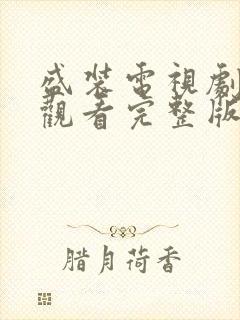 盛裝電視劇
觀看完整版
腊月荷香